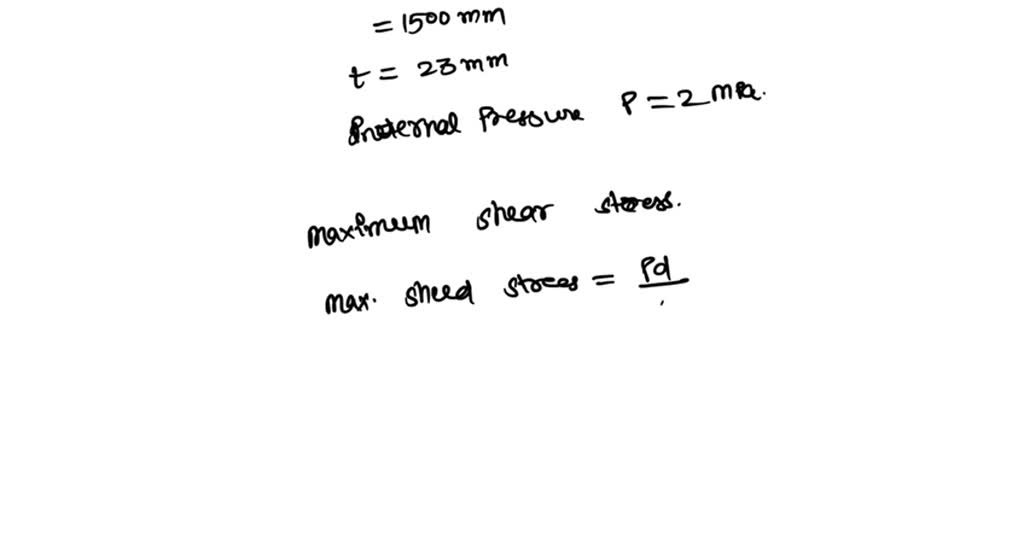 = 1500 mm
t = 23 mm
Internal Pressure P = 2 MPa.
maximum shear stress.
max. sheed stress = Pd